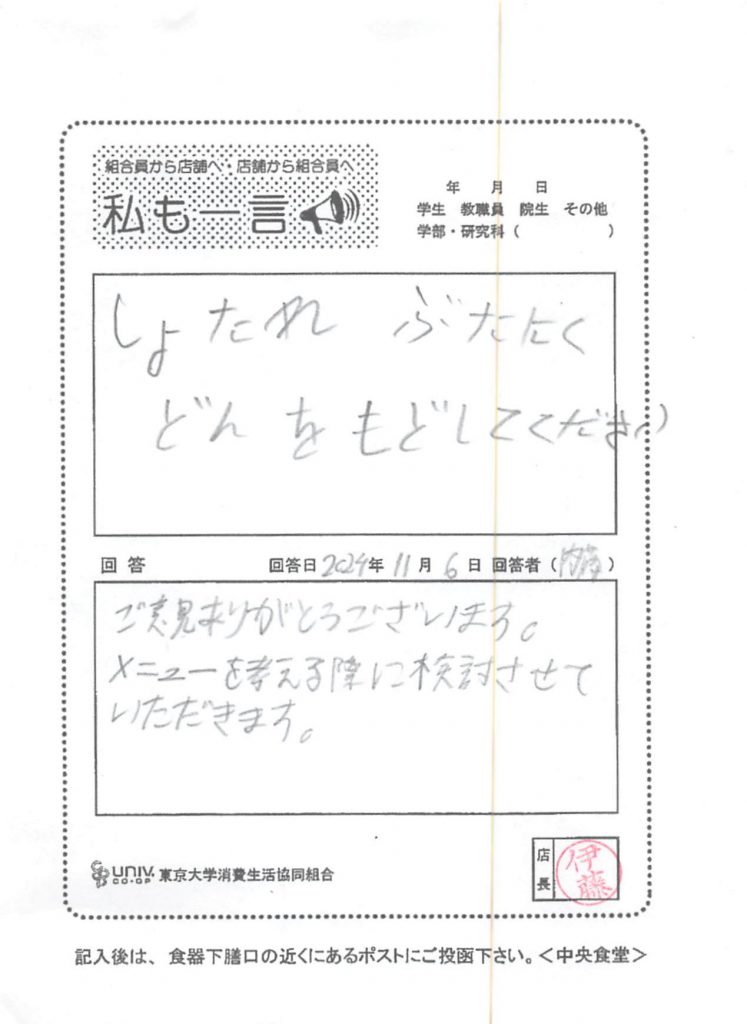 組合員から店舗へ・店舗から組合員へ
私も一言
年 月 日
学生 教職員 院生 その他
学部・研究科（ ）
しょたれ ぶたにく
どん をもどしてください
回答 回答日 2024年 11月 6日 回答者（内藤）
ご意見ありがとうございます。
メニューを考える際に検討させて
いただきます。
UNIV. CO-OP 東京大学消費生活協同組合
店長 伊藤
記入後は、食器下膳口の近くにあるポストにご投函下さい。＜中央食堂＞